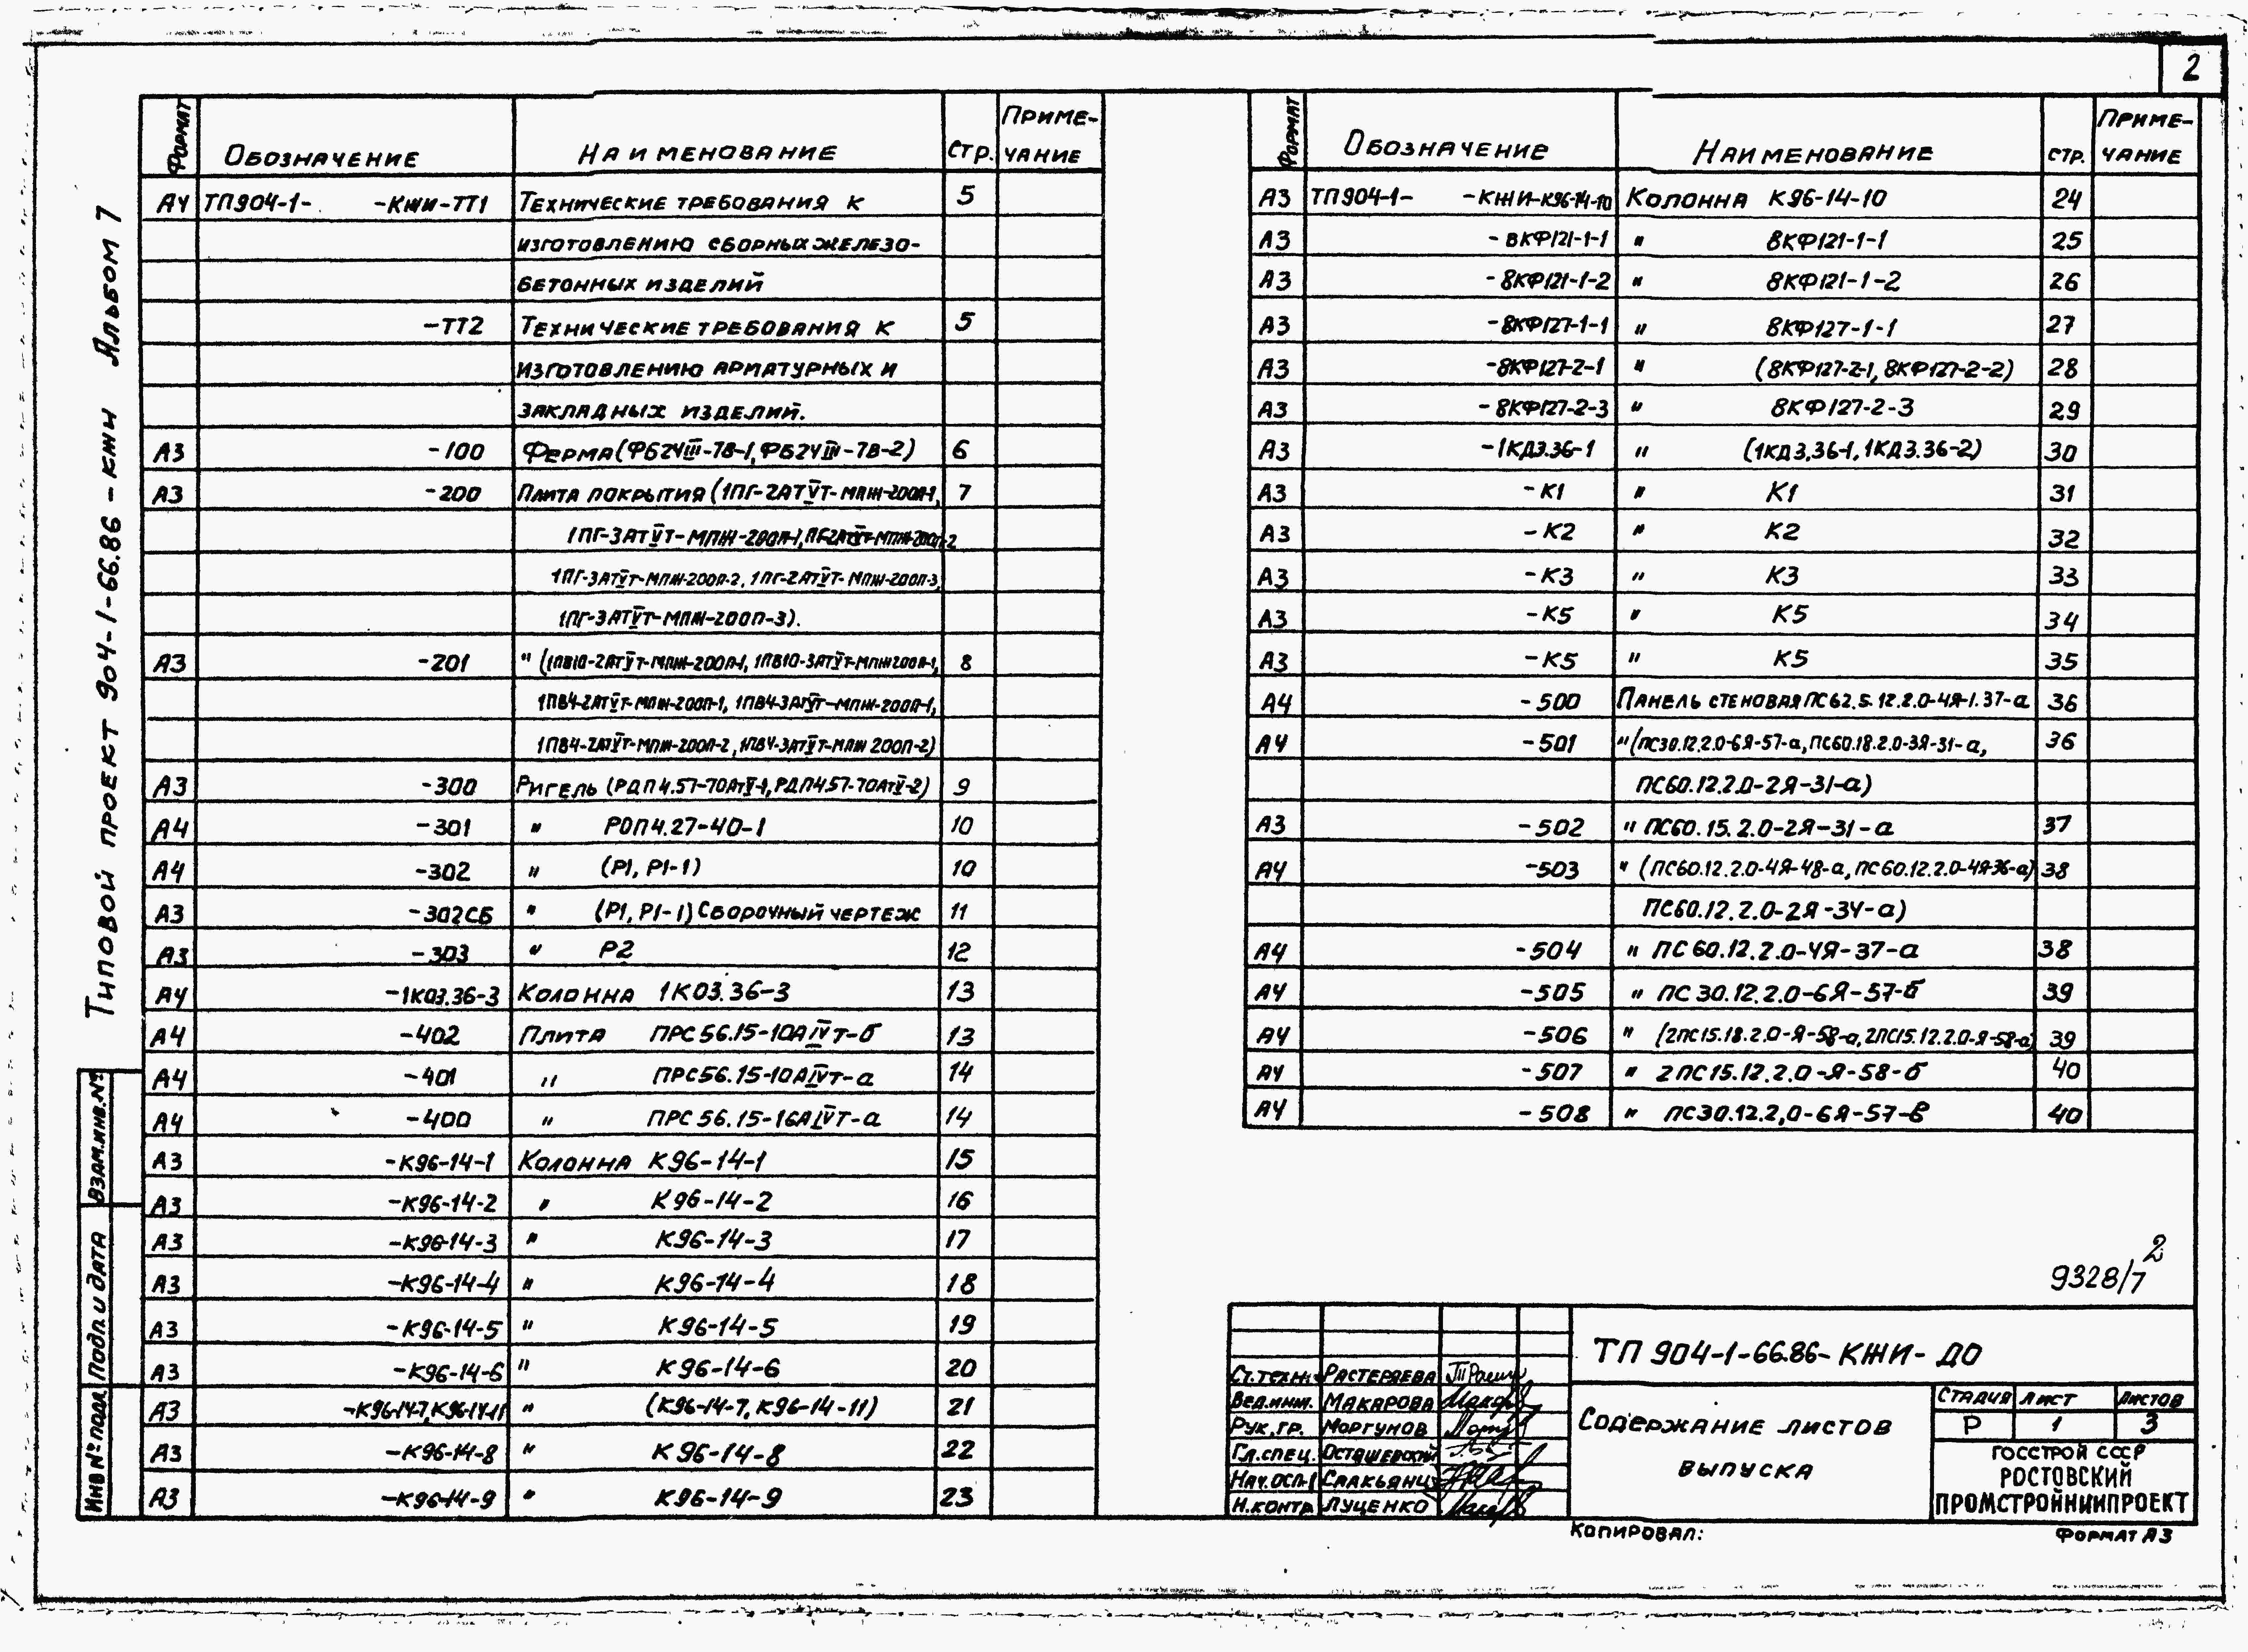 2
Типовой проект 904-1-66.86-КЖИ Альбом 7
Формат Обозначение Наименование Стр. Приме-
чание
А4 ТП904-1- -КЖИ-ТТ1 Технические требования к 5
изготовлению сборных железо-
бетонных изделий
-ТТ2 Технические требования к 5
изготовлению арматурных и
закладных изделий.
А3 -100 Ферма (ФБ24III-7В-1, ФБ24III-7В-2) 6
А3 -200 Плита покрытия (1ПГ-2АТVТ-МПЖ-200П-1, 7
1ПГ-3АТVТ-МПЖ-200П-1, 1ПГ-2АТVТ-МПЖ-200П-2
1ПГ-3АТVТ-МПЖ-200П-2, 1ПГ-2АТVТ-МПЖ-200П-3,
1ПГ-3АТVТ-МПЖ-200П-3).
А3 -201 " (1ПВ10-2АТVТ-МПЖ-200П-1, 1ПВ10-3АТVТ-МПЖ200П-1, 8
1ПВ4-2АТVТ-МПЖ-200П-1, 1ПВ4-3АТVТ-МПЖ-200П-1,
1ПВ4-2АТVТ-МПЖ-200П-2, 1ПВ4-3АТVТ-МПЖ 200П-2)
А3 -300 Ригель (РДП4.57-70АтV-1, РДП4.57-70АтV-2) 9
А4 -301 " РОП4.27-40-1 10
А4 -302 " (Р1, Р1-1) 10
А3 -302СБ " (Р1, Р1-1) Сборочный чертеж 11
А3 -303 " Р2 12
А4 -1К03.36-3 Колонна 1К03.36-3 13
А4 -402 Плита ПРС56.15-10АIVт-б 13
А4 -401 " ПРС56.15-10АIVт-а 14
А4 -400 " ПРС56.15-16АIVт-а 14
А3 -К96-14-1 Колонна К96-14-1 15
А3 -К96-14-2 " К96-14-2 16
А3 -К96-14-3 " К96-14-3 17
А3 -К96-14-4 " К96-14-4 18
А3 -К96-14-5 " К96-14-5 19
А3 -К96-14-6 " К96-14-6 20
А3 -К96-14-7, К96-14-11 " (К96-14-7, К96-14-11) 21
А3 -К96-14-8 " К96-14-8 22
А3 -К96-14-9 " К96-14-9 23
Формат Обозначение Наименование стр. Приме-
чание
А3 ТП904-1- -КЖИ-К96-14-10 Колонна К96-14-10 24
А3 -8КФ121-1-1 " 8КФ121-1-1 25
А3 -8КФ121-1-2 " 8КФ121-1-2 26
А3 -8КФ127-1-1 " 8КФ127-1-1 27
А3 -8КФ127-2-1 " (8КФ127-2-1, 8КФ127-2-2) 28
А3 -8КФ127-2-3 " 8КФ127-2-3 29
А3 -1КД3.36-1 " (1КД3.36-1, 1КД3.36-2) 30
А3 -К1 " К1 31
А3 -К2 " К2 32
А3 -К3 " К3 33
А3 -К5 " К5 34
А3 -К5 " К5 35
А4 -500 Панель стеновая ПС62.5.12.2.0-4Я-1.37-а 36
А4 -501 " (ПС30.12.2.0-6Я-57-а, ПС60.18.2.0-3Я-31-а, 36
ПС60.12.2.0-2Я-31-а)
А3 -502 " ПС60.15.2.0-2Я-31-а 37
А4 -503 " (ПС60.12.2.0-4Я-48-а, ПС60.12.2.0-4Я-36-а) 38
ПС60.12.2.0-2Я-34-а)
А4 -504 " ПС60.12.2.0-4Я-37-а 38
А4 -505 " ПС30.12.2.0-6Я-57-б 39
А4 -506 " (2ПС15.18.2.0-Я-58-а, 2ПС15.12.2.0-Я-58-а) 39
А4 -507 " 2ПС15.12.2.0-Я-58-б 40
А4 -508 " ПС30.12.2,0-6Я-57-в 40
Взам.инв.№
Подп. и дата
Инв № подл.
9328/7 2
ТП 904-1-66.86-КЖИ-ДО
Ст.техн. Растеряева
Вед.инж. Макарова
Рук.гр. Моргунов
Гл.спец. Осташевский
Нач.ОСП-1 Саакьянц
Н.контр Луценко
Содержание листов
выпуска
Стадия Лист Листов
Р 1 3
ГОССТРОЙ СССР
РОСТОВСКИЙ
ПРОМСТРОЙНИИПРОЕКТ
Копировал:
Формат А3